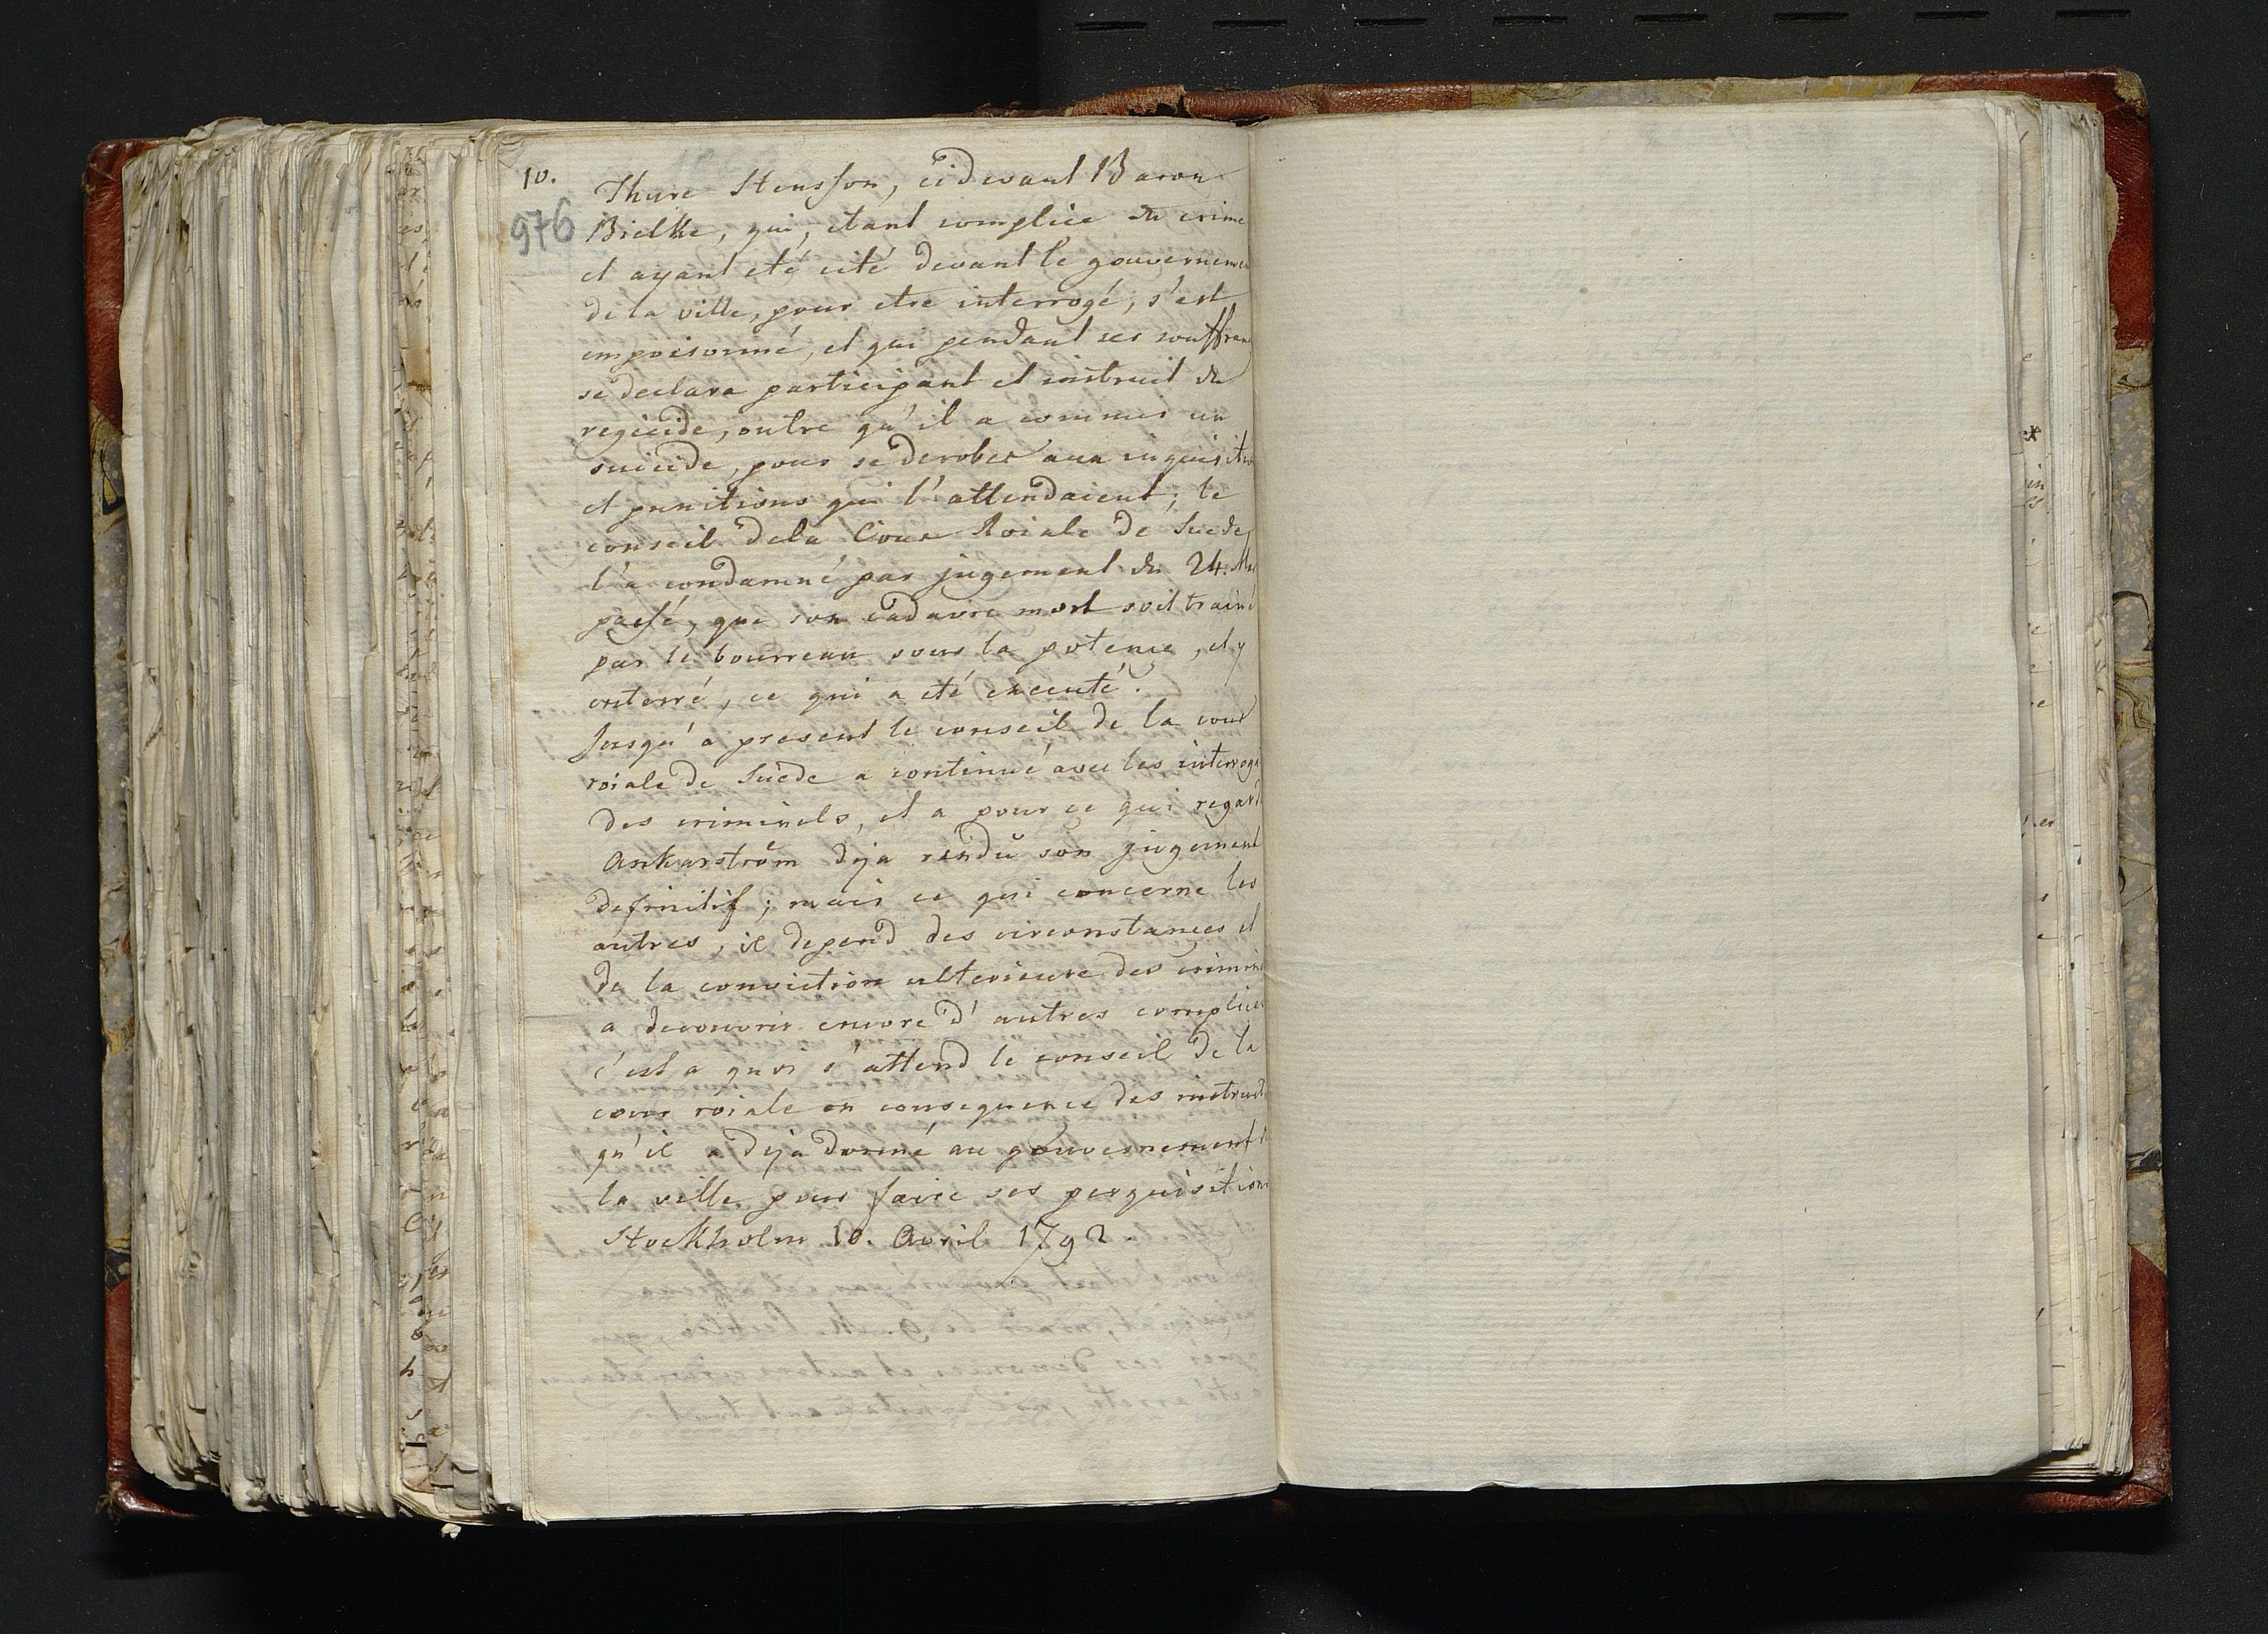 10.
Thure Stensson, ci devant Baron
976
Bielke, qui, etant complice du crime
et ayant eté cité devant le gouvernemen
de la ville, pour etre interrogé, s'est
empoisonné, et qui pendant ses souffran
se declara participant et instruit du
regicide, outre qu'il a commis un
suicide, pour se derober aux inquisitio
et punitions qui l'attendaient; le
conseil dela Cour Roiale de Suede,
l'a condamné par jugement du 24. Ma
passé, que son cadavre mort soit trainé
par le bourreau sous la potence, et y
enterré, ce qui a eté executé.
Jusqu'a present le conseil de la cour
roiale de Suede a continué avec les interroga
des criminels, et a pour ce qui regard
Ankarström deja rendŭ son jugement
definitif; mais ce qui concerne les
autres, il depend des circonstances et
de la conviction ulterieure des crimin
a decouvrir encore d'autres complices
c'est a quoi s'attend le conseil de la
cour roiale en consequence des instruct
qu'il a deja donné au gouvernement d
la ville pour faire ses perquisitions
Stockholm 10. Avril 1792.